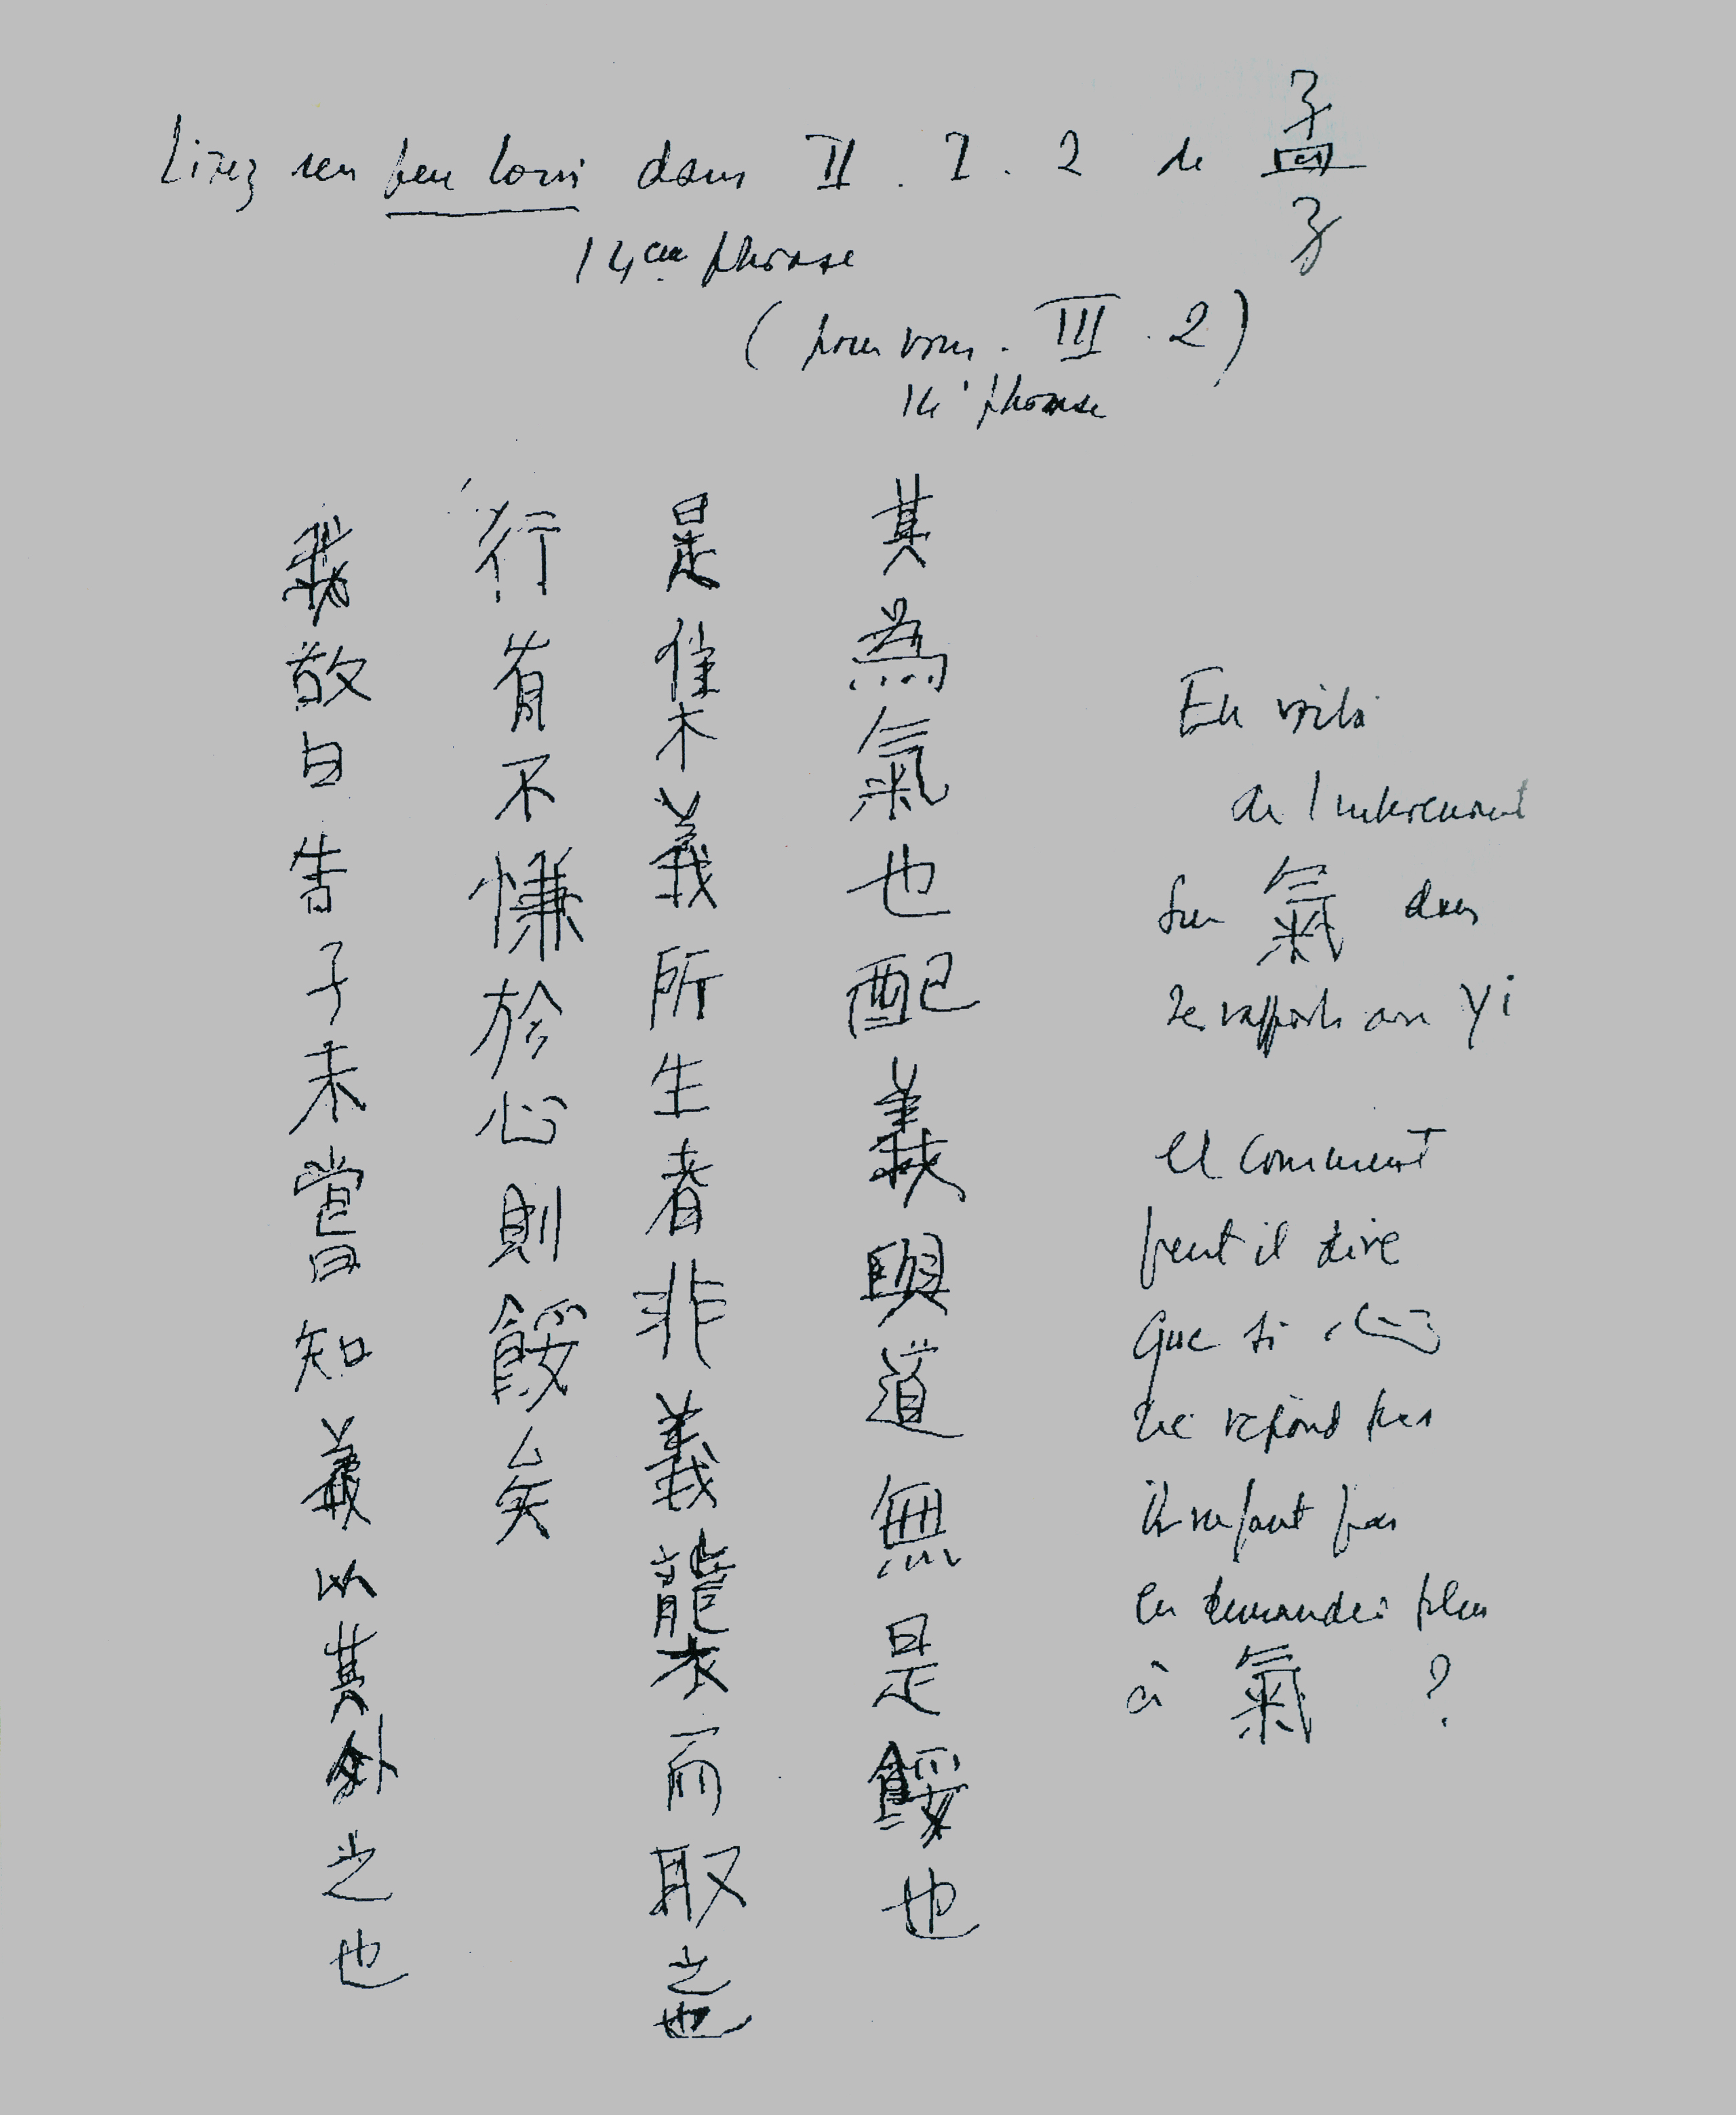 Lisez un peu loin dans II . I . 2 de 孟子
14ème phrase
( pour vous . III . 2 )
14e phrase
其為氣也配義與道無是餒也
是集義所生者非義襲而取之也
行有不慊於心則餒矣
我故曰告子未嘗知義以其外之也
En voilà
de l'intéressant
sur 氣 dans
ses rapports avec Yi
et comment
peut il dire
que si 心
ne répond pas
il ne faut pas
en demander plus
à 氣 ?